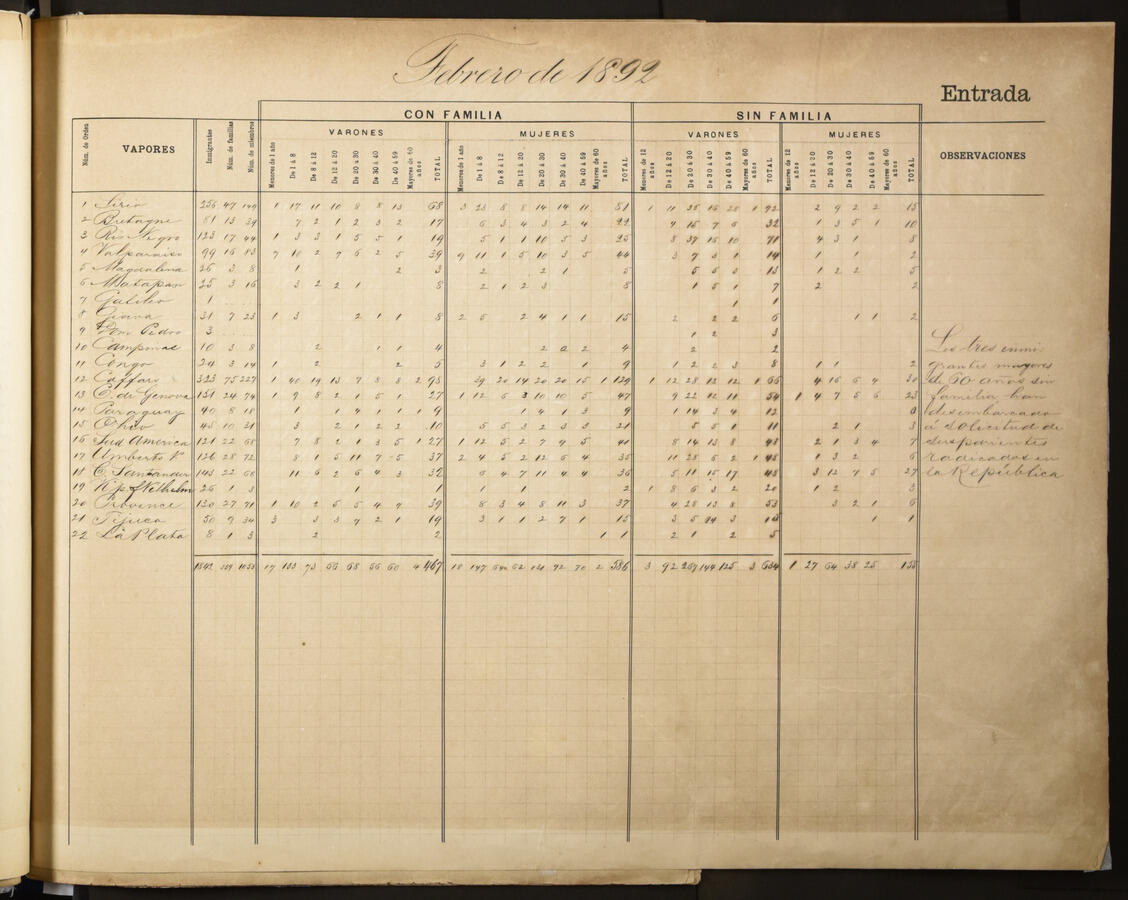 Febrero de 1892
Entrada
CON FAMILIA SIN FAMILIA
VARONES MUJERES VARONES MUJERES
Núm. de Orden VAPORES Inmigrantes Núm. de familias Núm. de miembros Menores de 1 año De 1 á 8 De 8 á 12 De 12 á 20 De 20 á 30 De 30 á 40 De 40 á 59 Mayores de 60 años TOTAL Menores de 1 año De 1 á 8 De 8 á 12 De 12 á 20 De 20 á 30 De 30 á 40 De 40 á 59 Mayores de 60 años TOTAL Menores de 12 De 12 á 20 De 20 á 30 De 30 á 40 De 40 á 59 Mayores de 60 años TOTAL Menores de 12 años De 12 á 20 De 20 á 30 De 30 á 40 De 40 á 59 Mayores de 60 años TOTAL OBSERVACIONES
1 Sirio 256 47 149 1 17 11 10 8 8 13 68 3 23 8 8 14 14 11 81 1 11 35 16 28 1 92 2 9 2 2 15
2 Bretagne 81 13 39 7 2 1 2 3 2 17 6 3 4 3 2 4 22 4 15 7 6 32 1 3 5 1 10
3 Rio Negro 123 17 44 1 3 3 1 5 5 1 19 5 1 1 10 5 3 25 8 37 16 10 71 4 3 1 8
4 Valparaiso 99 16 83 7 10 2 7 6 2 5 39 9 11 1 5 10 3 5 44 3 7 3 1 14 1 1 2
5 Magdalena 26 3 8 1 2 3 2 2 1 5 5 5 3 13 1 2 2 5
6 Matapan 25 3 16 3 2 2 1 8 2 1 2 3 8 1 5 1 7 2 2
7 Galileo 1 1 1
8 31 7 23 1 3 2 1 1 8 2 5 2 4 1 1 15 2 2 2 6 1 1 2
9 Dom Pedro 3 1 2 3
10 Campinas 10 3 8 2 1 1 4 2 2 4 2 2
11 Congo 24 3 14 1 2 2 5 3 1 2 2 1 9 1 2 2 3 8 1 1 2
12 Caffaro 323 75 227 1 40 19 13 7 8 8 2 98 29 20 14 20 20 15 1 129 1 12 28 12 12 1 66 4 16 6 4 30
13 C. di Genova 151 24 74 1 9 8 2 1 5 1 27 1 12 6 3 10 10 5 47 9 22 12 11 54 1 4 7 5 6 23
14 Paraguay 40 8 18 1 4 1 1 1 9 1 4 1 3 9 1 4 3 4 12
15 Ohio 45 10 31 3 2 1 2 2 10 5 5 3 2 3 3 21 5 5 1 11 2 1 3
16 Sud America 121 22 68 7 8 2 1 3 5 1 27 1 12 5 2 7 9 5 41 8 14 13 8 2 1 3 4
17 Umberto 1º 126 28 72 8 1 5 11 7 5 37 2 4 5 2 12 6 4 35 11 28 5 2 1 3 2 6
18 C. Santander 143 22 68 11 6 2 6 4 3 32 6 4 7 11 4 4 36 5 11 15 17 3 12 7 5 27
19 26 3 1 1 1 1 2 1 8 6 3 2 20 1 2 3
20 Provence 130 27 71 1 10 2 5 5 4 39 8 3 4 8 11 3 37 4 28 13 8 53 3 2 1 6
21 Tijuca 50 9 34 3 3 3 7 2 1 19 3 1 1 2 7 1 15 3 5 3 1 1
22 La Plata 8 1 3 2 2 1 1 2 1 2 5
17 133 73 4 467 18 147 586 3 92 3 1 27
Los tres inmi-
grantes mayores
de 60 años sin
familia han
desembarcado
á solicitud de
sus parientes
radicados en
la República